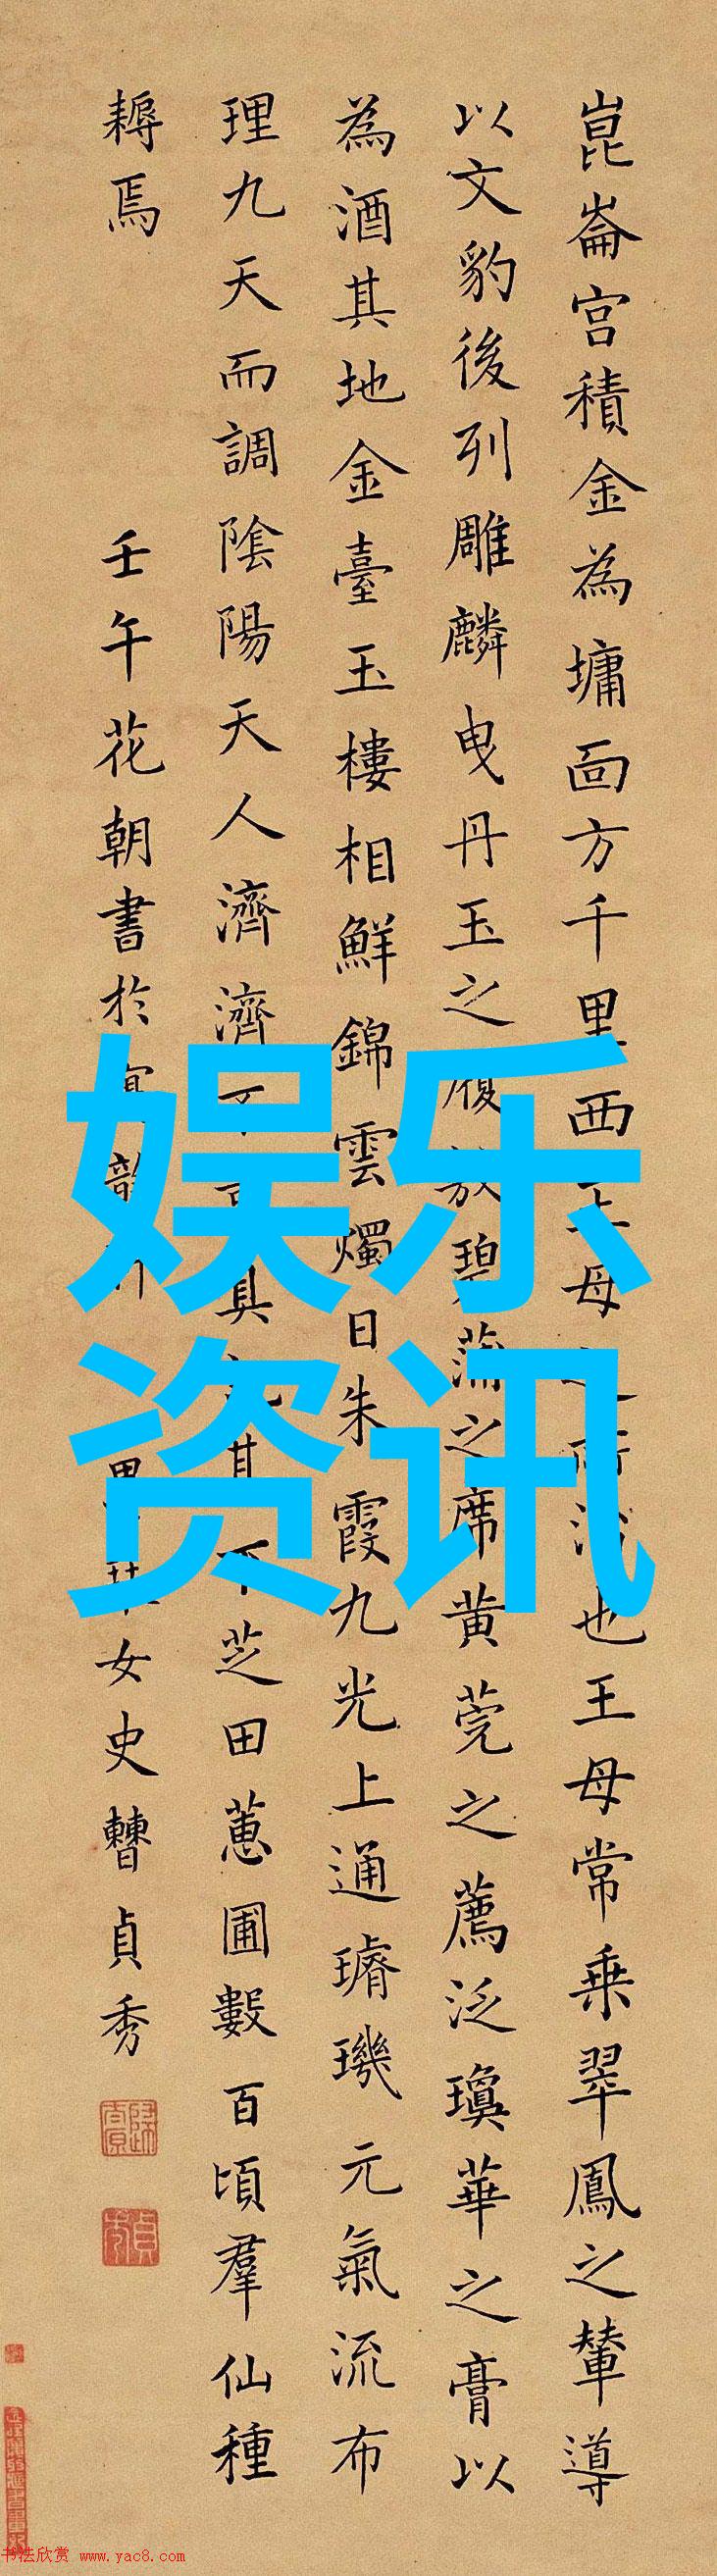 崑崙宫積金為墉面方千里西王母之所治也王母常乗翠鳳之輦導
以文豹後列雕麟曳丹玉之履敷碧蒲之席黄莞之薦泛瓊華之膏以
為酒其地金臺玉樓相鮮錦雲燭日朱霞九光上通璿璣元氣流布
理九天而調陰陽天人濟濟不可具記其下芝田蕙圃數百頃羣仙種
耨焉
壬午花朝書於寫韻軒 墨琴女史曹貞秀
娱乐
资讯
书法欣赏 www.yac8.com